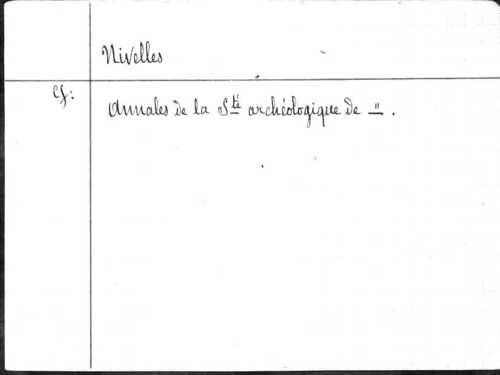 Nivelles
cf: Annales de la Sté archéologique de — " — .